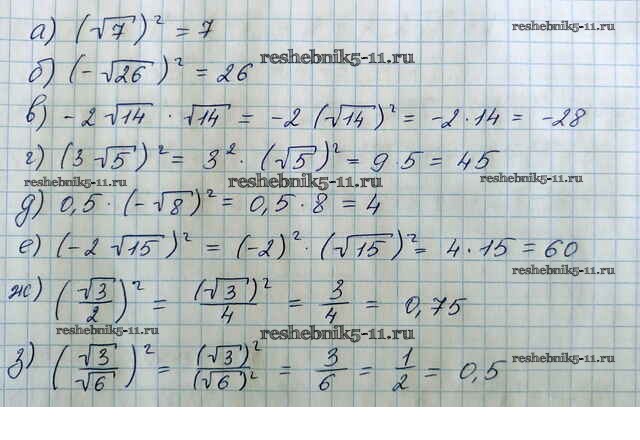 а) (√7)² = 7
reshebnik5-11.ru
reshebnik5-11.ru
б) (-√26)² = 26
в) -2√14 · √14 = -2(√14)² = -2·14 = -28
г) (3√5)² = 3² · (√5)² = 9·5 = 45
reshebnik5-11.ru reshebnik5-11.ru reshebnik5-11.ru
д) 0,5·(-√8)² = 0,5·8 = 4
е) (-2√15)² = (-2)²·(√15)² = 4·15 = 60
reshebnik5-11.ru
ж) (√3/2)² = (√3)²/4 = 3/4 = 0,75
reshebnik5-11.ru reshebnik5-11.ru
reshebnik5-11.ru
з) (√3/√6)² = (√3)²/(√6)² = 3/6 = 1/2 = 0,5